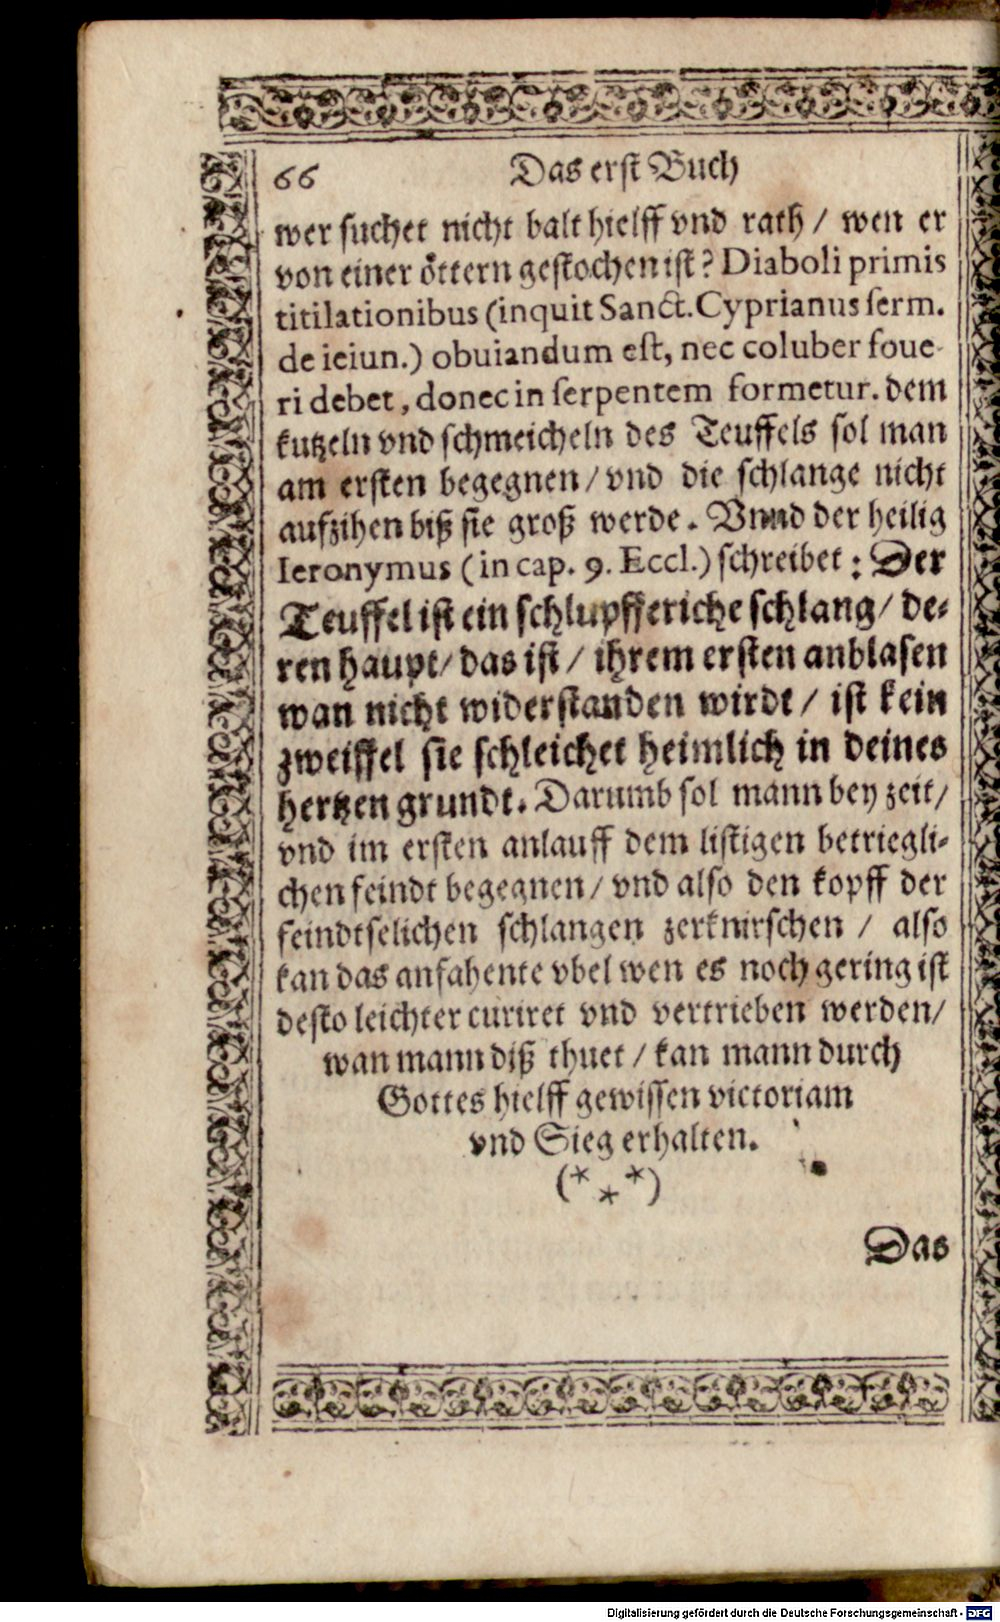 66 Das erst Buch
wer suchet nicht balt hielff vnd rath / wen er
von einer öttern gestochen ist? Diaboli primis
titilationibus (inquit Sanct. Cyprianus serm.
de ieiun.) obuiandum est, nec coluber foue-
ri debet, donec in serpentem formetur. dem
kutzeln vnd schmeicheln des Teuffels sol man
am ersten begegnen / vnd die schlange nicht
aufzihen biß sie groß werde. Vnnd der heilig
Ieronymus (in cap. 9. Eccl.) schreibet: Der
Teuffel ist ein schlupfferiche schlang / de-
ren haupt / das ist / ihrem ersten anblasen
wan nicht widerstanden wirdt / ist kein
zweiffel sie schleichet heimlich in deines
hertzen grundt. Darumb sol mann bey zeit /
vnd im ersten anlauff dem listigen betriegli-
chen feindt begegnen / vnd also den kopff der
feindtselichen schlangen zerknirschen / also
kan das anfahente vbel wen es noch gering ist
desto leichter curiret vnd vertrieben werden /
wan mann diß thuet / kan mann durch
Gottes hielff gewissen victoriam
vnd Sieg erhalten.
(* * *)
Das
Digitalisierung gefördert durch die Deutsche Forschungsgemeinschaft - DFG